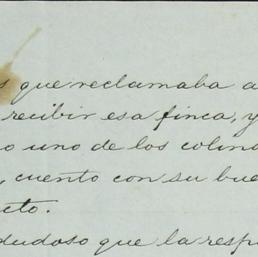 s que reclamaba a
recibir esa finca, y
o uno de los colin
, cuento con su bue
cto.
dudoso que la resp